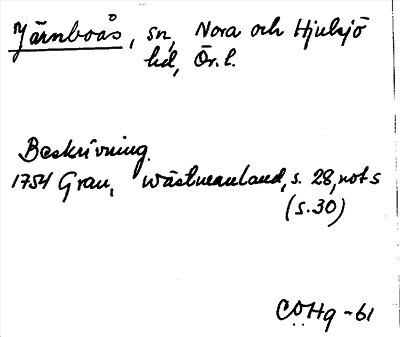 Järnboås, sn, Nora och Hjulsjö
hd, Ör. l.
Beskrivning.
1754 Grau, Wästmanland, s. 28, not s
(s. 30)
CÖHg -61